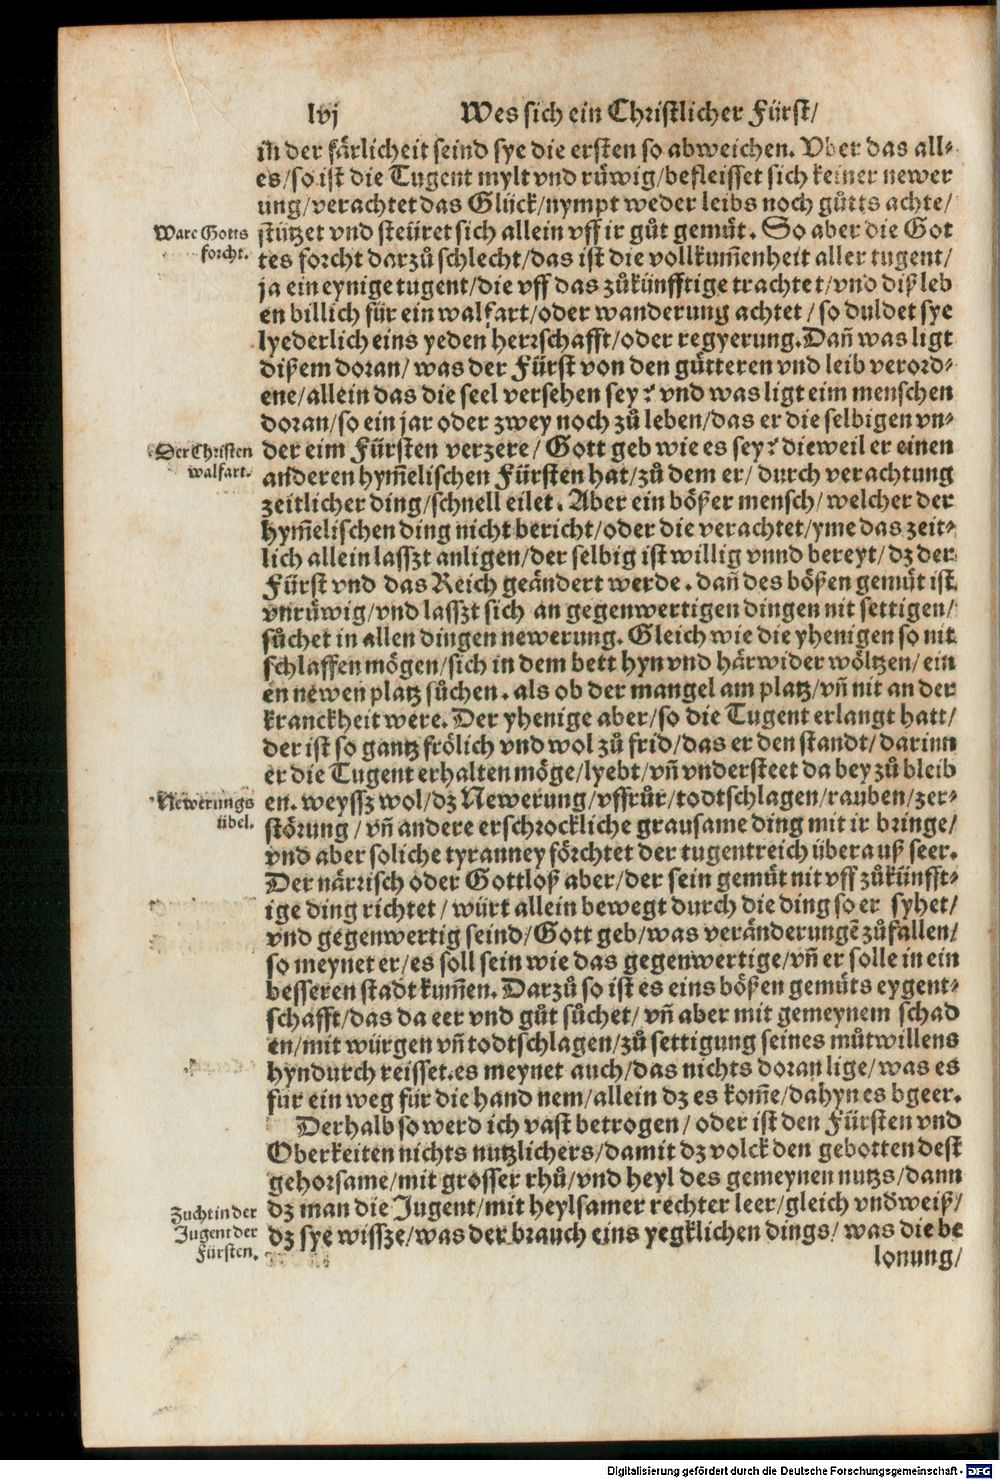 lvj Wes sich ein Christlicher Fürst/
in der färlicheit seind sye die ersten so abweichen. Vber das all⸗
es/so ist die Tugent mylt vnd rüwig/befleisset sich keiner newer
ung/verachtet das Glück/nympt weder leibs noch gůtts achte/
Ware Gotts
forcht.
stützet vnd steüret sich allein vff ir gůt gemüt. So aber die Got
tes forcht darzů schlecht/das ist die vollkum̃enheit aller tugent/
ja ein eynige tugent/die vff das zůkünfftige trachtet/vnd diß leb
en billich für ein walfart/oder wanderung achtet/so duldet sye
lyederlich eins yeden herrschafft/oder regyerung. Dañ was ligt
dißem doran/was der Fürst von den gütteren vnd leib verord⸗
ene/allein das die seel versehen sey? vnd was ligt eim menschen
doran/so ein jar oder zwey noch zů leben/das er die selbigen vn⸗
Der Christen
walfart.
der eim Fürsten verzere/Gott geb wie es sey? dieweil er einen
anderen hym̃elischen Fürsten hat/zů dem er/durch verachtung
zeitlicher ding/schnell eilet. Aber ein bößer mensch/welcher der
hym̃elischen ding nicht bericht/oder die verachtet/yme das zeit⸗
lich allein lasszt anligen/der selbig ist willig vnnd bereyt/dz der
Fürst vnd das Reich geändert werde. dañ des bößen gemüt ist
vnrüwig/vnd lasszt sich an gegenwertigen dingen nit settigen/
sůchet in allen dingen newerung. Gleich wie die yhenigen so nit
schlaffen mögen/sich in dem bett hyn vnd härwider wöltzen/ein
en newen platz sůchen. als ob der mangel am platz/vñ nit an der
kranckheit were. Der yhenige aber/so die Tugent erlangt hatt/
der ist so gantz frölich vnd wol zů frid/das er den standt/darinn
er die Tugent erhalten möge/lyebt/vñ vndersteet da bey zů bleib
Newerungs
übel.
en. weyssz wol/dz Newerung/vffrůr/todtschlagen/rauben/zer⸗
störung/vñ andere erschrockliche grausame ding mit ir bringe/
vnd aber soliche tyranney förchtet der tugentreich überauß seer.
Der närrisch oder Gottloß aber/der sein gemüt nit vff zůkünfft⸗
ige ding richtet/würt allein bewegt durch die ding so er syhet/
vnd gegenwertig seind/Gott geb/was veränderungẽ zůfallen/
so meynet er/es soll sein wie das gegenwertige/vñ er solle in ein
besseren stadt kum̃en. Darzů so ist es eins bößen gemüts eygent⸗
schafft/das da eer vnd gůt sůchet/vñ aber mit gemeynem schad
en/mit würgen vñ todtschlagen/zů settigung seines můtwillens
hyndurch reisset. es meynet auch/das nichts doran lige/was es
für ein weg für die hand nem/allein dz es kom̃e/dahyn es bgeer.
Derhalb so werd ich vast betrogen/oder ist den Fürsten vnd
Oberkeiten nichts nutzlichers/damit dz volck den gebotten dest
gehorsame/mit grosser rhů/vnd heyl des gemeynen nutzs/dann
Zucht in der
Jugent der
Fürsten.
dz man die Jugent/mit heylsamer rechter leer/gleich vndweiß/
dz sye wissze/was der brauch eins yegklichen dings/was die be
lonung/
Digitalisierung gefördert durch die Deutsche Forschungsgemeinschaft - DFG